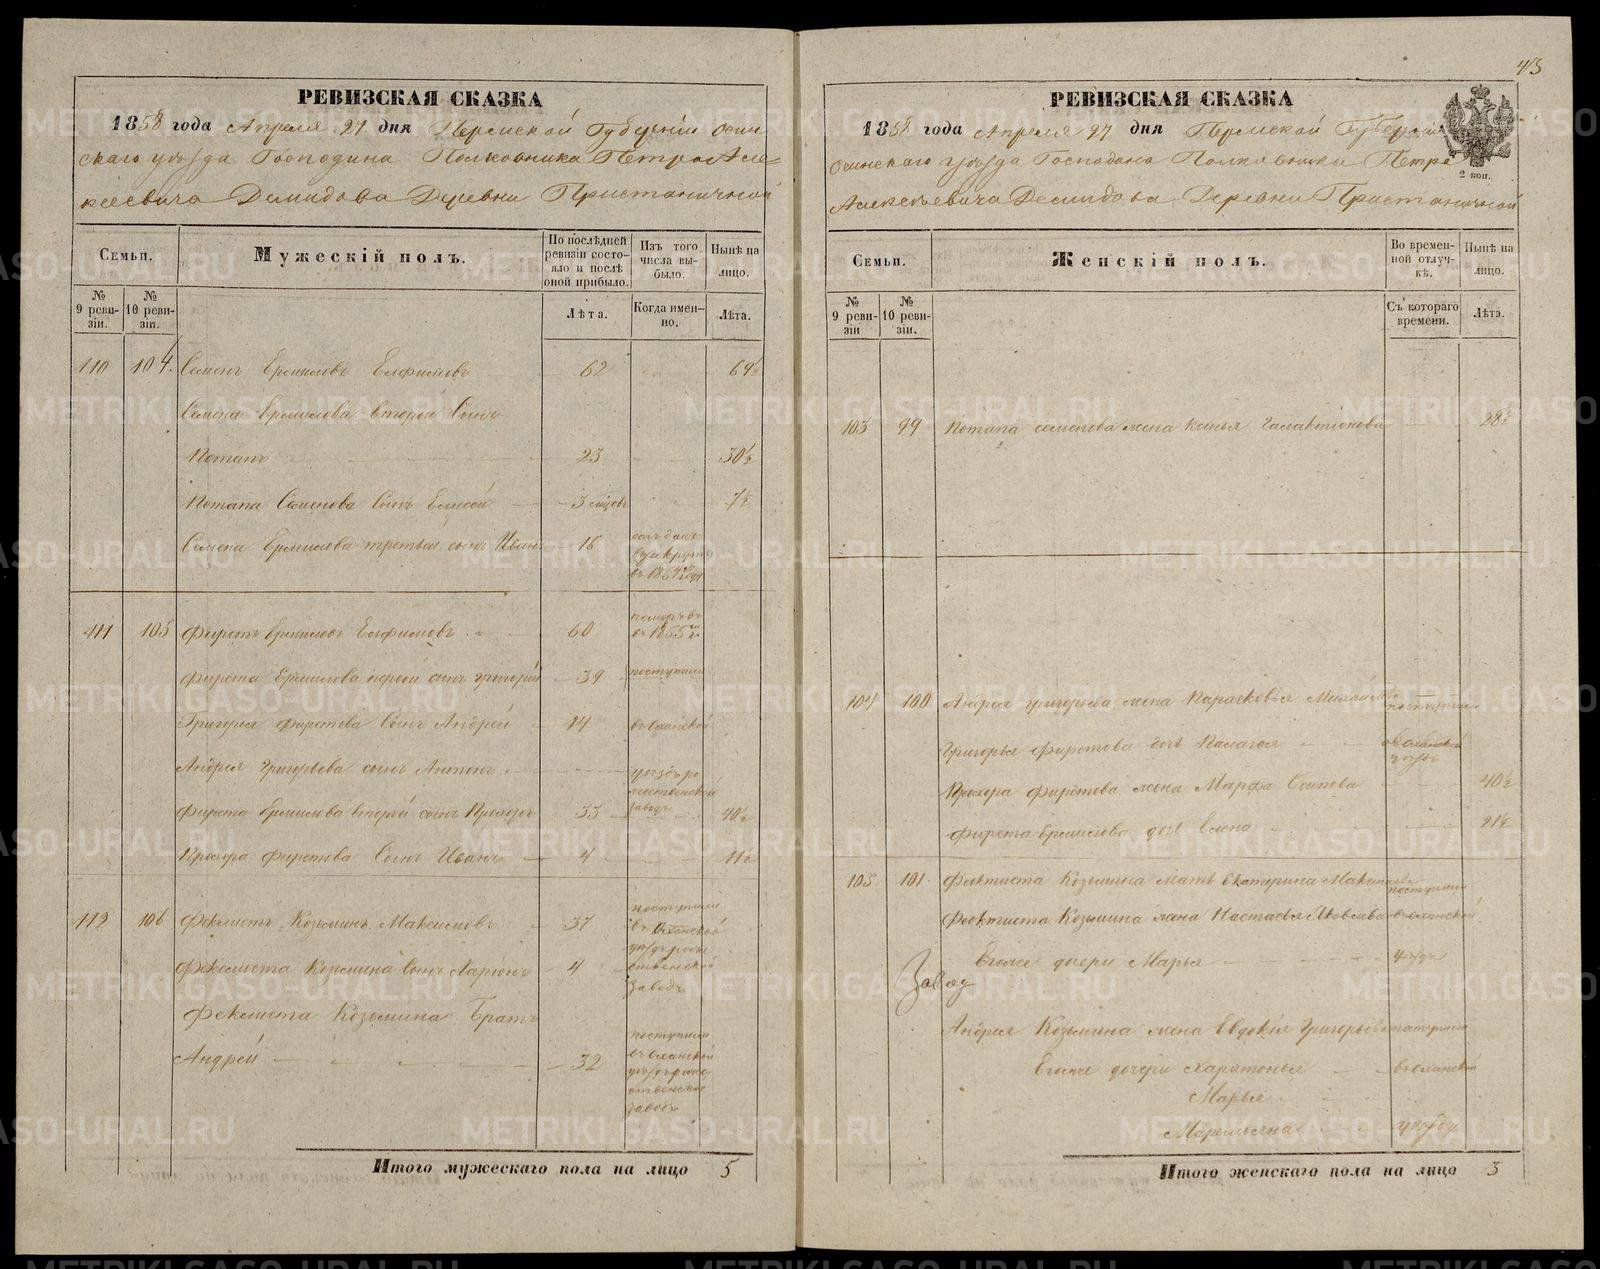 РЕВИЗСКАЯ СКАЗКА
1858 года Апреля 27 дня Пермской Губернии Осин-
скаго уѣзда Господина Полковника Петра Але-
ксѣевича Демидова Деревни Пристаничной
Семьи.
Мужескій полъ.
По послѣдней ревизіи состояло и послѣ оной прибыло.
Изъ того числа выбыло.
Нынѣ на лицо.
№ 9 ревизіи.
№ 10 ревизіи.
Лѣта.
Когда именно.
Лѣта.
110 104. Семенъ Ермиловъ Елфимовъ 62 69½
Семена Ермилова второй Сынъ
Потапъ 23 30½
Потапа Семенова Сынъ Елисей 3 мѣсяцевъ 7½
Семена Ермилова третьй сынъ Иванъ 16 въ рекруты въ 1854 году
111 105 Фирстъ Ермиловъ Елфимовъ 60 померъ въ 1855 г.
Фирста Ермилова первой сынъ Григорій 39 поступили
Григорья Фирстова Сынъ Андрей 14 въ Оханской
Андрея Григорьева сынъ Антонъ уѣздъ рождественской заводъ
Фирста Ермилова второй сынъ Прохоръ 33 40½
Прохора Фирстова Сынъ Иванъ 4 11½
112 106 Феклистъ Козьминъ Максимовъ 37 поступили въ Оханской уѣздъ рождественской заводъ
Феклиста Козьмина Сынъ Ларіонъ 4
Феклиста Козьмина Братъ
Андрей 32 поступили въ Оханской уѣздъ рождественской заводъ
Итого мужескаго пола на лицо 5
43
РЕВИЗСКАЯ СКАЗКА
1858 года Апреля 27 дня Пермской Губерніи
Осинскаго Уѣзда Господина Полковника Петра
Алексѣевича Демидова Деревни Пристаничной
2 коп.
Семьи.
Женскій полъ.
Во временной отлучкѣ.
Нынѣ на лицо.
№ 9 ревизіи
№ 10 ревизіи.
Съ котораго времени.
Лѣта.
103 99 Потапа Семенова жена Ксенья Галактіонова 28½
104 100 Андрея Григорьева жена Парасковья Михайлова поступили
Григорья Фирстова дочь Палагея въ Оханской уѣздъ
Прохора Фирстова жена Марфа Осипова 40½
Фирста Ермилова дочь Елена 21½
105 101 Феоктиста Козьмина мать Екатерина Максимова поступили
Феоктиста Козьмина жена Настасья Яковлева въ Оханской
Егоже дочери Марья уѣздъ
Завод
Андрея Козьмина жена Евдокія Григорьева поступили
Егоже дочери Харитонья въ Оханской
Марья
Маремьяна уѣздъ
Итого женскаго пола на лицо 3
METRIKI.GASO-URAL.RU